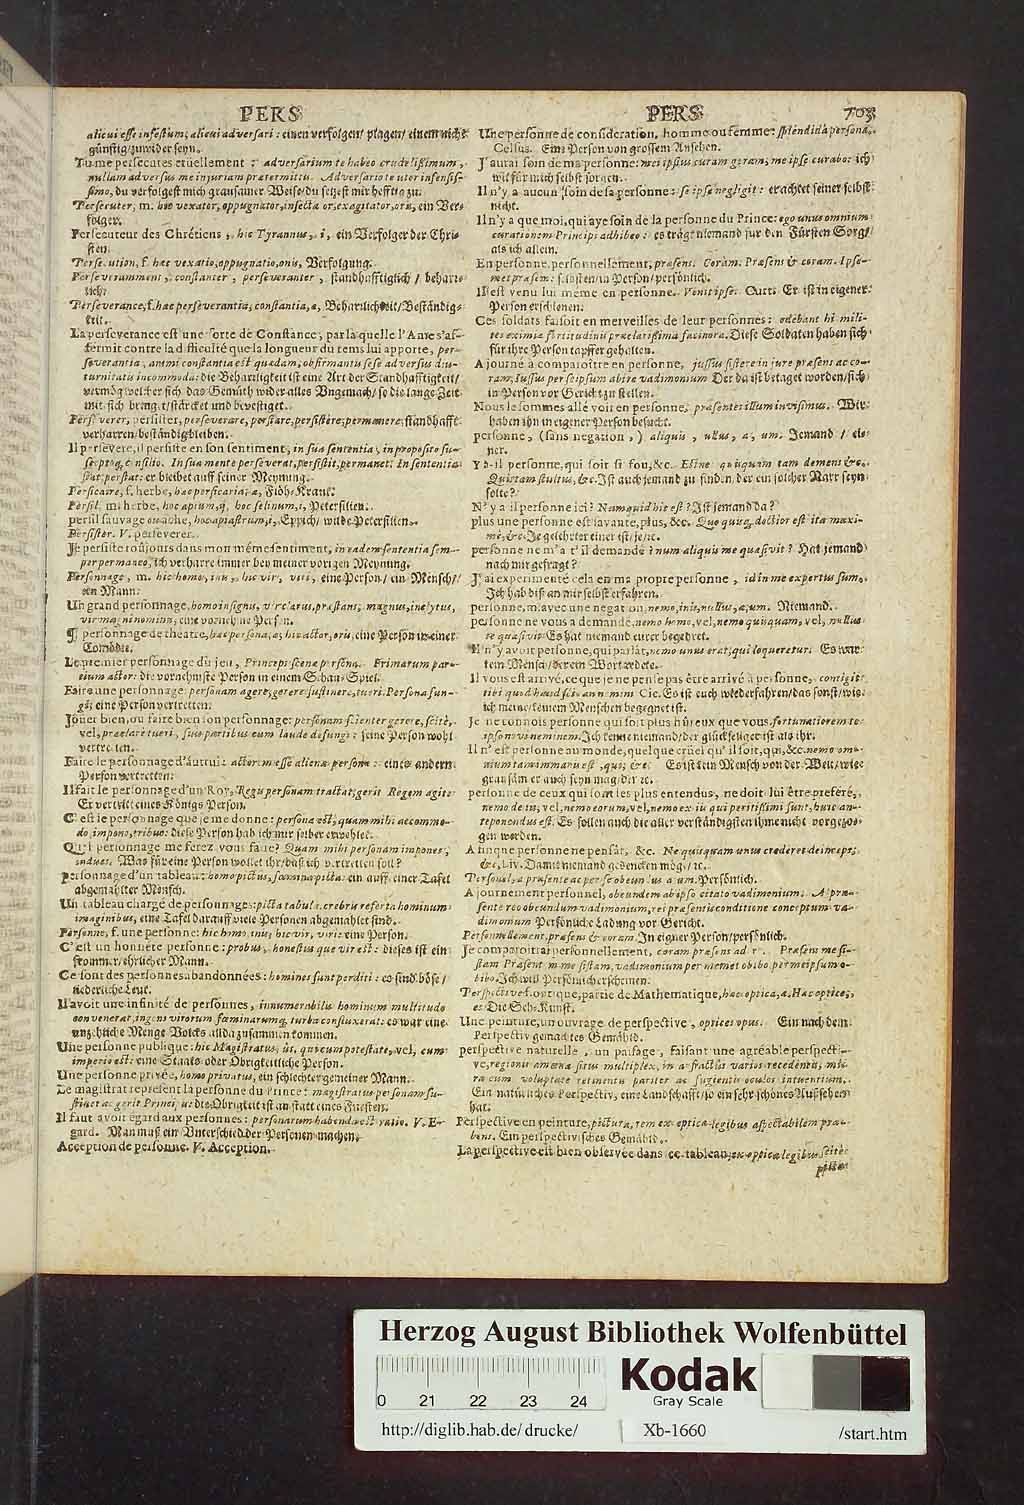 PERS
alicui esse infestum; alicui adversari: einen verfolgen/ plagen/ einem nicht
günstig/ zuwider seyn.
Tu me persecutes crüellement: adversarium te habeo crudelissimum,
nullam adversus me injuriam prætermittis. Adversario te utor infensis-
simo, du verfolgest mich grausamer Weise/ du setzest mir hefftig zu.
Persecuter, m. hic vexator, oppugnator, insectator, exagitator, oris, ein Ver-
folger.
Persecuteur des Chrétiens, hic Tyrannus, i, ein Verfolger der Chri-
sten.
Persecution, f. hæc vexatio, oppugnatio, onis, Verfolgung.
Perseveramment, constanter, perseveranter, standhafftiglich/ beharr-
lich.
Perseverance, f. hæc perseverantia, constantia, æ, Beharrlichkeit/ Beständig-
keit.
La perseverance est une sorte de Constance, par laquelle l'Ame s'af-
fermit contre la difficulté que la longueur du tems lui apporte, per-
severantia, animi constantia est quædam, obfirmantis sese adversus diu-
turnitatis incommoda: die Beharrligkeit ist eine Art der Standhafftigkeit/
vermög welcher sich das Gemüth wider alles Ungemach/ so die lange Zeit
mit sich bringt/ stärcket und bevestiget.
Perseverer, persister, perseverare, perstare, persistere, permanere, standhafft
verharren/ beständig bleiben.
Il persevere, il persiste en son sentiment, in sua sententia, in proposito su-
scepto, consilio. In sua mente perseverat, persistit, permanet. In sententia
stat, perstat: er bleibet auff seiner Meynung.
Persicaire, f. herbe, hæc persicaria, æ, Flöh-Kraut.
Persil, m. herbe, hoc apium, ij, hoc selinum, i, Petersilien.
persil sauvage ou ache, hoc apiastrum, i, Eppich/ wilde Petersilien.
Persister. V. perseverer.
Je persiste toûjours dans mon méme sentiment, in eadem sententia sem-
per permaneo, ich verharre immer bey meiner vorigen Meynung.
Personnage, m. hic homo, inis, hic vir, viri, eine Person/ ein Mensch/
ein Mann.
Un grand personnage, homo insignis, vir clarus, præstans, magnus, inclytus,
vir magni nominis, eine vornehme Person.
¶ personnage de theatre, hæc persona, æ, hic actor, oris, eine Person in einer
Comödie.
Le premier personnage du jeu, Princeps scenæ persona. Primarum par-
tium actor: die vornehmste Person in einem Schau-Spiel.
Faire une personnage: personam agere, gerere, sustinere, tueri. Persona fun-
gi, eine Person vertretten.
Joüer bien, ou faire bien son personnage: personam scienter gerere, scitè,
vel, præclarè tueri, suis partibus cum laude defungi: seine Person wohl
vertretten.
Faire le personnage d'autrui: actorem esse alienæ personæ: eines andern
Person vertretten.
Il fait le personnage d'un Roy, Regis personam tractat, gerit Regem agit:
Er vertritt eines Königs Person.
C'est le personnage que je me donne: persona est, quam mihi accommo-
do, impono, tribuo: diese Person hab ich mir selber erwehlet.
Quel personnage me ferez vous faire? Quam mihi personam impones,
indues? Was für eine Person wollet ihr/ daß ich vertretten soll?
personnage d'un tableau: homo pictus, femina picta: ein auff einer Tafel
abgemahlter Mensch.
Un tableau chargé de personnages: picta tabula, crebris referta hominum
imaginibus, eine Tafel darauff viele Personen abgemahlet sind.
Personne, f. une personne: hic homo, inis; hic vir, viri: eine Person.
C'est un honnête personne: probus, honestus que vir est: dieses ist ein
frommer/ ehrlicher Mann.
Ce sont des personnes abandonnées: homines sunt perditi: es sind böse/
niederliche Leut.
Il avoit une infinité de personnes, innumerabilis hominum multitudo
convenerat, ingens virorum fœminarumq; turba confluxerat: es war eine
unzehliche Menge Volcks allda zusammen kommen.
Une personne publique: hic Magistratus, ûs, qui cum potestate, vel, cum
imperio est: eine Staats- oder Obrigkeitliche Person.
Une personne privée, homo privatus, ein schlechter gemeiner Mann.
Le magistrat represent la personne du Prince: magistratus personam su-
stinet ac gerit Principis: die Obrigkeit ist an statt eines Fürsten.
Il faut avoir égard aux personnes: personarum habenda est ratio. V. E-
gard. Man muß ein Unterschied der Personen machen.
Acception de personne. V. Acception.
PERS 703
Une personne de consideration, homme ou femme: splendida persona,
Celsus. Eine Person von grossem Ansehen.
J'aurai soin de ma personne: mei ipsius curam geram; me ipse curabo: ich
will für mich selbst sorgen.
Il n'y a aucun soin de sa personne: se ipse negligit: er achtet seiner selbst
nicht.
Il n'y a que moi, qui aye soin de la personne du Prince: ego unus omnium
curationem Principi adhibeo: es trägt niemand für den Fürsten Sorg/
als ich allein.
En personne, personnellement, præsens. Coràm. Præsens & coram. Ipse-
met præsens: selbsten/ in Person/ persönlich.
Il est venu lui méme en personne. Venit ipse. Curt. Er ist in eigener
Person erschienen.
Ces soldats faisoit en merveilles de leur personnes: edebant hi mili-
tes eximia fortitudinis præclarissima facinora. Diese Soldaten haben sich
für ihre Person tapffer gehalten.
Ajourné à comparoître en personne, jussus sistere in jure præsens ac co-
ram, jussus per se ipsum abire vadimonium Der da ist betaget worden/ sich
in Person vor Gericht zu stellen.
Nous le sommes allé voir en personne, præsentes illum invisimus. Wir
haben ihn in eigener Person besucht.
personne, (sans negation,) aliquis, ullus, a, um. Jemand/ ei-
ner.
Y a-il personne, qui soit si fou, &c. Estne quisquam tam demens &c.
Quis tam stultus, &c. Ist auch jemand zu finden, der ein solcher Narr seyn
solte?
N'y a il personne ici? Numquid hic est? Ist jemand da?
plus une personne est savante, plus, &c. Quo quisq; doctior est ita maxi-
mè, &c. Je gelehrter einer ist/ je rc.
personne ne m'a t'il demandé? num aliquis me quæsivit? Hat jemand
nach mir gefragt?
J'ai experimenté cela en ma propre personne, id in me expertus sum,
Ich hab diß an mir selbst erfahren.
personne, m. avec une negation, nemo, inis, nullus, a, um. Niemand.
personne ne vous a demandé, nemo homo, vel, nemo quisquam, vel, nullus
te quæsivit: Es hat niemand eurer begehret.
Il n'y avoit personne, qui parlât, nemo unus erat, qui loqueretur: Es war
kein Mensch/ der ein Wort redete.
Il vous est arrivé, ce que je ne pense pas être arrivé à personne, contigit
tibi quod haud scio an nemini Cic. Es ist euch wiederfahren/ das sonst/ wie
ich meine/ keinem Menschen begegnet ist.
Je ne connois personne qui soit plus hûreux que vous, fortunatiorem te
ipso novi neminem. Ich kenne niemand/ der glückseliger ist als ihr.
Il n'est personne au monde, quelque crüel qu'il soit, qui, &c. nemo om-
nium tam immanis est, qui; &c. Es ist kein Mensch von der Welt/ wie
grausam er auch seyn mag/ der rc.
personne de ceux qui sont les plus entendus, ne doit lui être preferé,
nemo de iis, vel, nemo eorum, vel, nemo ex iis qui peritissimi sunt, huic an-
teponendus est. Es sollen auch die aller verständigsten ihme nicht vorgezo-
gen werden.
A fin que personne ne pensât, &c. Ne quisquam unus crederet deinceps,
&c. Liv. Damit niemand gedencken mög/ rc.
Personel, a præsente ac per se obeundus a um. Persönlich.
Ajournement personnel, obeundum ab ipso citato vadimonium. A præ-
sente reo obeundum vadimonium, rei præsentis conditione conceptum va-
dimonium Persönliche Ladung vor Gericht.
Personnellement, præsens & coram In eigner Person/ persönlich.
Je comparoîtrai personnellement, coram præsens ad Præsens me si-
stam Præsentem me sistam, vadimonium per memet obibo per me ipsum o-
bibo. Ich will Persönlich erscheinen.
Perspective f. optique, partie de Mathematique, hæc optica, æ. Hæc optice,
es. Die Seh-Kunst.
Une peinture, un ouvrage de perspective, optices opus. Ein nach dem
Perspectiv gemachtes Gemähld.
perspective naturelle, un païsage, faisant une agréable perspecti-
ve, regionis amœna situs multiplex, in anfractus varios recedentis, mi-
ra cum voluptate retinentis pariter ac fugientis oculos intuentium,
Ein natürliches Perspectiv, eine Landschafft/ so ein sehr schönes Außsehen
hat.
Perspective en peinture, pictura, rem ex optica legibus aspectabilem præ-
bens. Ein perspectivisches Gemähld.
La perspective est bien observée dans ce tableau, ex optica legibus scitè
picta
Herzog August Bibliothek Wolfenbüttel
0 21 22 23 24
Kodak
Gray Scale
http://diglib.hab.de/drucke/ Xb-1660 /start.htm